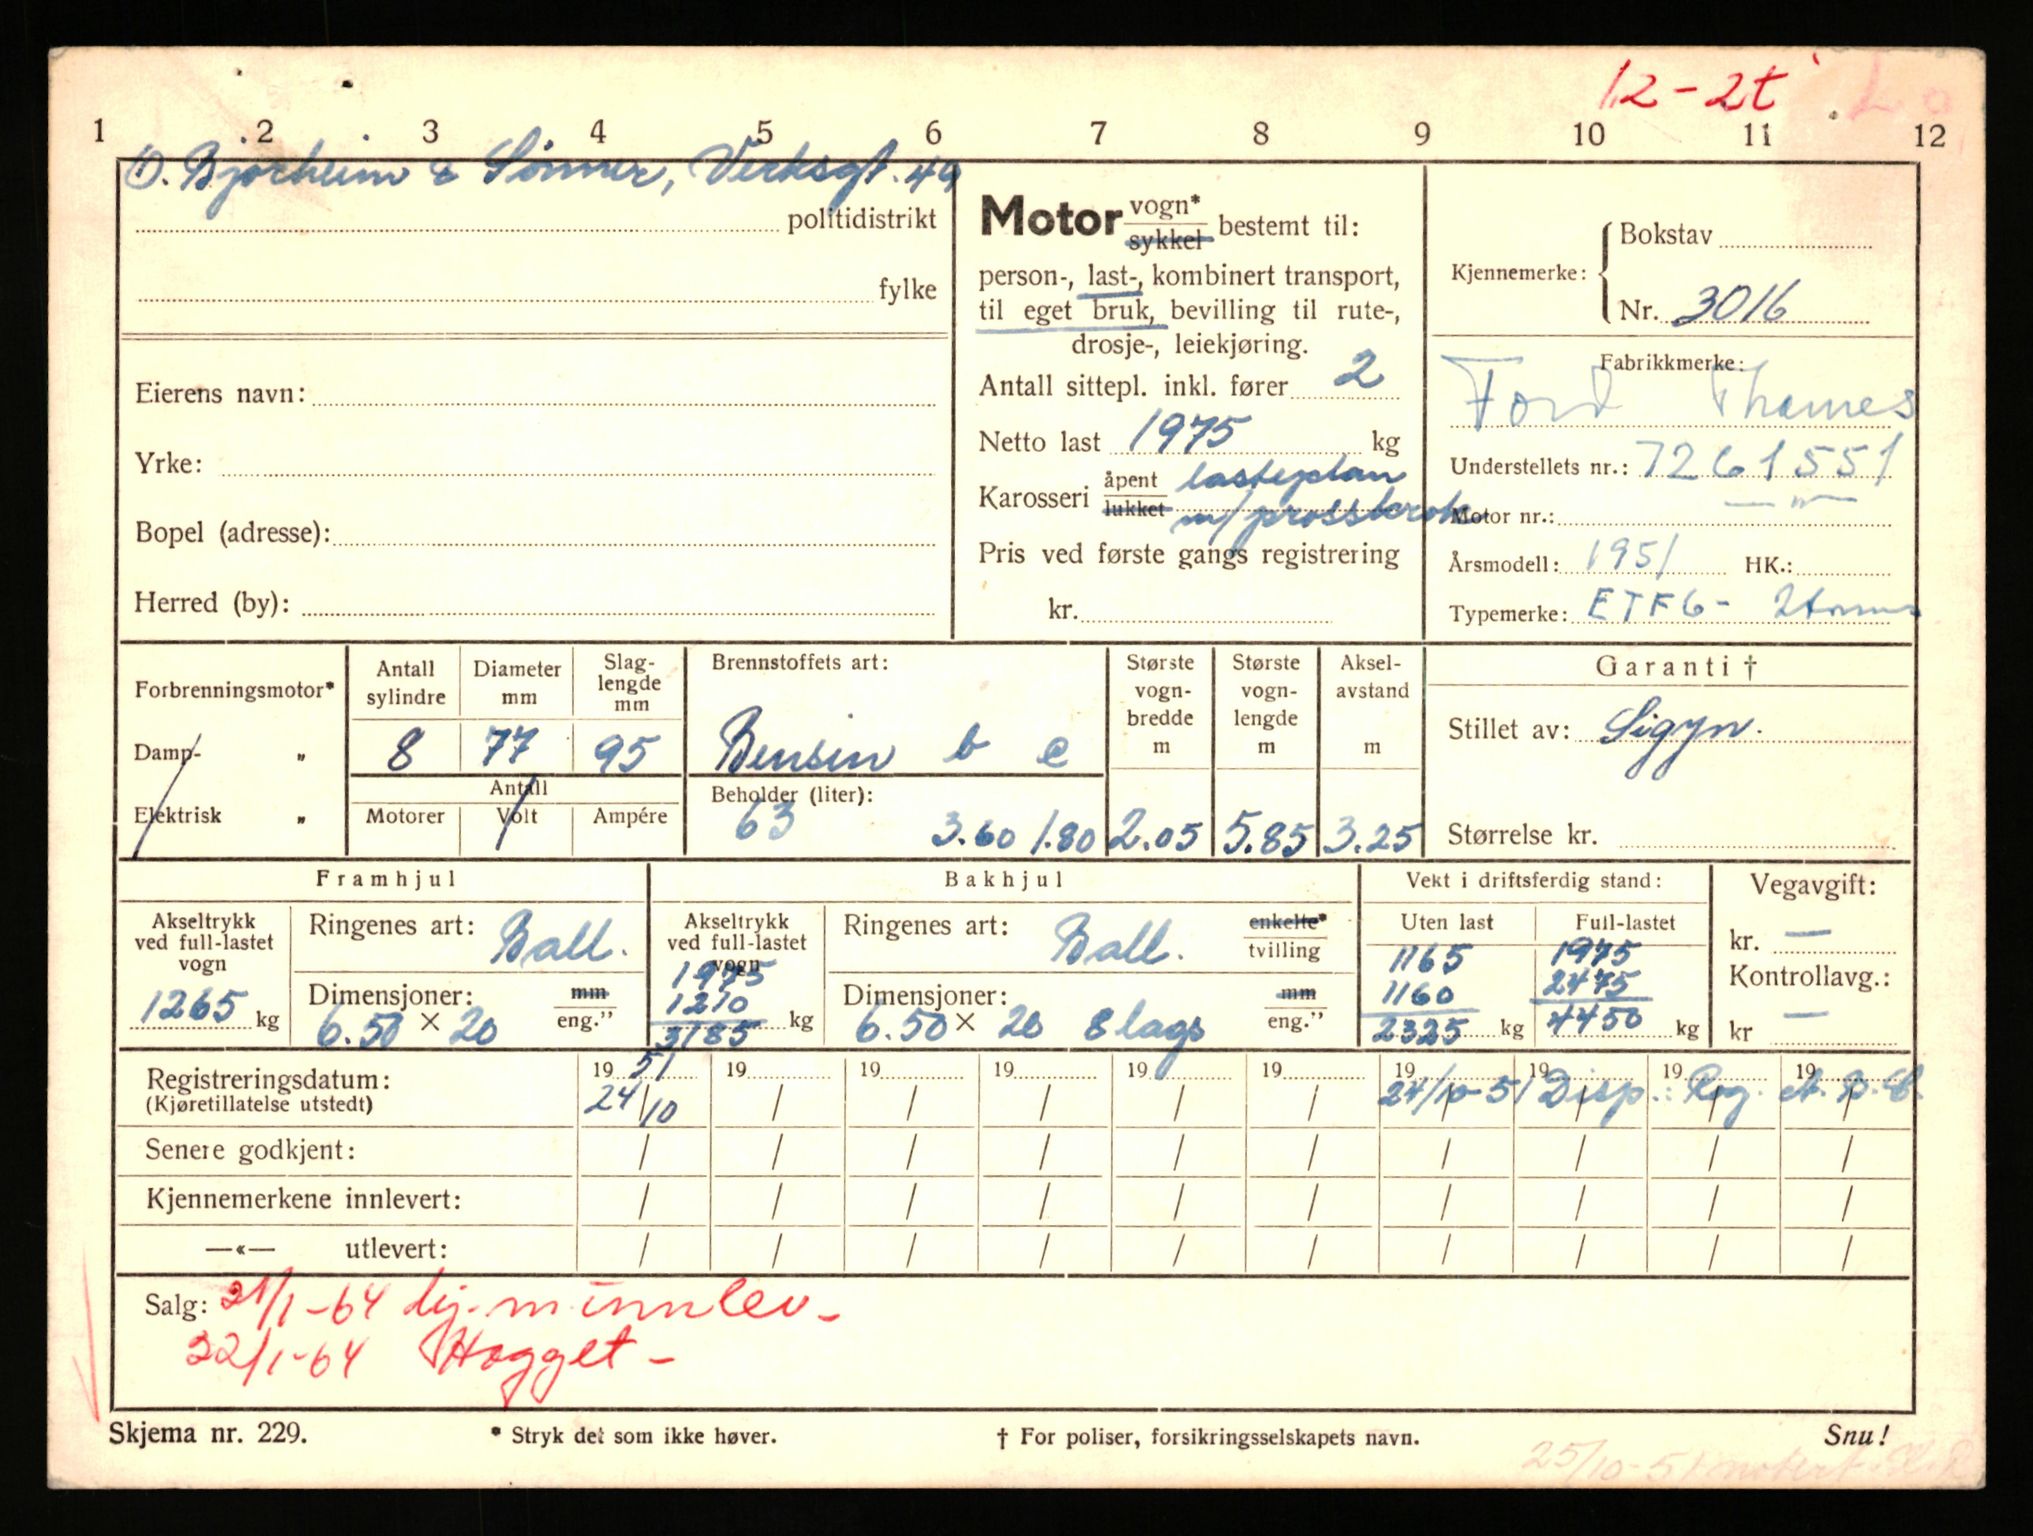 12-2t
1 2 3 4 5 6 7 8 9 10 11 12
O. Bjorheim & Sönner, Verksgt. 49
politidistrikt
fylke
Eierens navn:
Yrke:
Bopel (adresse):
Herred (by):
Motor vogn* sykkel bestemt til:
person-, last-, kombinert transport,
til eget bruk, bevilling til rute-,
drosje-, leiekjøring.
Antall sittepl. inkl. fører 2
Netto last 1975 kg
Karosseri åpent lukket lasteplan
m/
Pris ved første gangs registrering
kr.
Kjennemerke: Bokstav
Nr. 3016
Fabrikkmerke:
Ford Thames
Understellets nr.: 7261551
Motor nr.: — " —
Årsmodell: 1951 HK.:
Typemerke: ETF6 - 2tonns
Forbrenningsmotor*
Damp- „
Elektrisk „
Antall sylindre
8
Diameter mm
77
Slag-lengde mm
95
Antall
Motorer Volt Ampére
Brennstoffets art:
Bensin b e
Beholder (liter):
63 3.60 1.80
Største vogn-bredde m
2.05
Største vogn-lengde m
5.85
Aksel-avstand m
3.25
Garanti †
Stillet av: Sigyn.
Størrelse kr.
Framhjul
Akseltrykk ved full-lastet vogn
1265 kg
Ringenes art: Ball.
Dimensjoner: mm eng.”
6.50 × 20
Bakhjul
Akseltrykk ved full-lastet vogn
1975
1210
3185 kg
Ringenes art: Ball. enkelte* tvilling
Dimensjoner: mm eng.”
6.50 × 20 8 lags
Vekt i driftsferdig stand:
Uten last
1165
1160
2325 kg
Full-lastet
1975
2475
4450 kg
Vegavgift:
kr. —
Kontrollavg.:
kr —
Registreringsdatum:
(Kjøretillatelse utstedt)
1951 19 19 19 19 19 19 19 19 19
24/10 / / / / / 24/10-51 Disp.: Rog.
Senere godkjent: / / / / / / / / / /
Kjennemerkene innlevert: / / / / / / / / / /
—«— utlevert: / / / / / / / / / /
Salg: 21/1-64 kj.m. innlev-
22/1-64 Hogget-
Skjema nr. 229.
* Stryk det som ikke høver.
† For poliser, forsikringsselskapets navn.
Snu!
25/10-51 notert